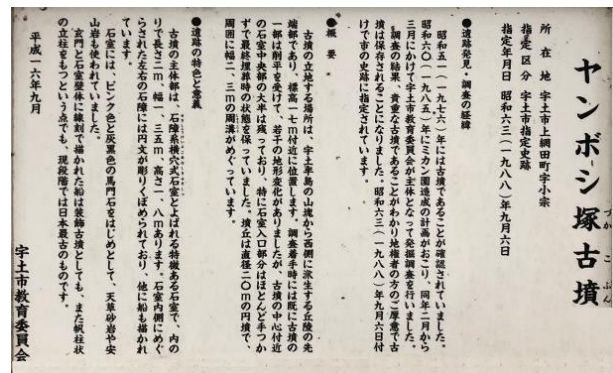 ヤンボシ塚古墳
づか こふん
所在地 宇土市上網田町字小宗
指定区分 宇土市指定史跡
指定年月日 昭和六三(一九八八)年九月六日
●遺跡発見・調査の経緯
昭和五一(一九七六)年には古墳であることが確認されていました。
昭和六〇(一九八五)年にミカン園造成の計画がおこり、同年二月から
三月にかけて宇土市教育委員会が主体となって発掘調査を行いました。
調査の結果、貴重な古墳であることがわかり地権者の方のご厚意で古
墳は保存されることになりました。昭和六三(一九八八)年九月六日付
けで市の史跡に指定されています。
●概要
古墳の立地する場所は、宇土半島の山塊から西側に派生する丘陵の先
端部であり、標高一七m付近に位置します。調査着手時には既に古墳の
一部は削平を受けて、若干の地形変化がありましたが、古墳の中心付近
の石室中央部の大半は残っており、特に石室入口部分はほとんど手つか
ずで最終埋葬時の状態を保っていました。墳丘は直径二〇mの円墳で、
周囲に幅二、三mの周溝がめぐっています。
●遺跡の特色と意義
古墳の主体部は、石障系横穴式石室とよばれる特徴ある石室で、内の
りで長さ二m、幅一、三五m、高さ一、八mあります。石室内側にめぐ
らされた左右の石障には円文が彫りくぼめられており、他に船も描かれ
ています。
石室には、ピンク色と灰黒色の馬門石をはじめとして、天草砂岩や安
山岩も使われていました。
玄門と石室壁体に線刻で描かれた船は装飾古墳としても、また帆柱状
の立柱をもつという点でも、現段階では日本最古のものです。
平成一六年九月
宇土市教育委員会